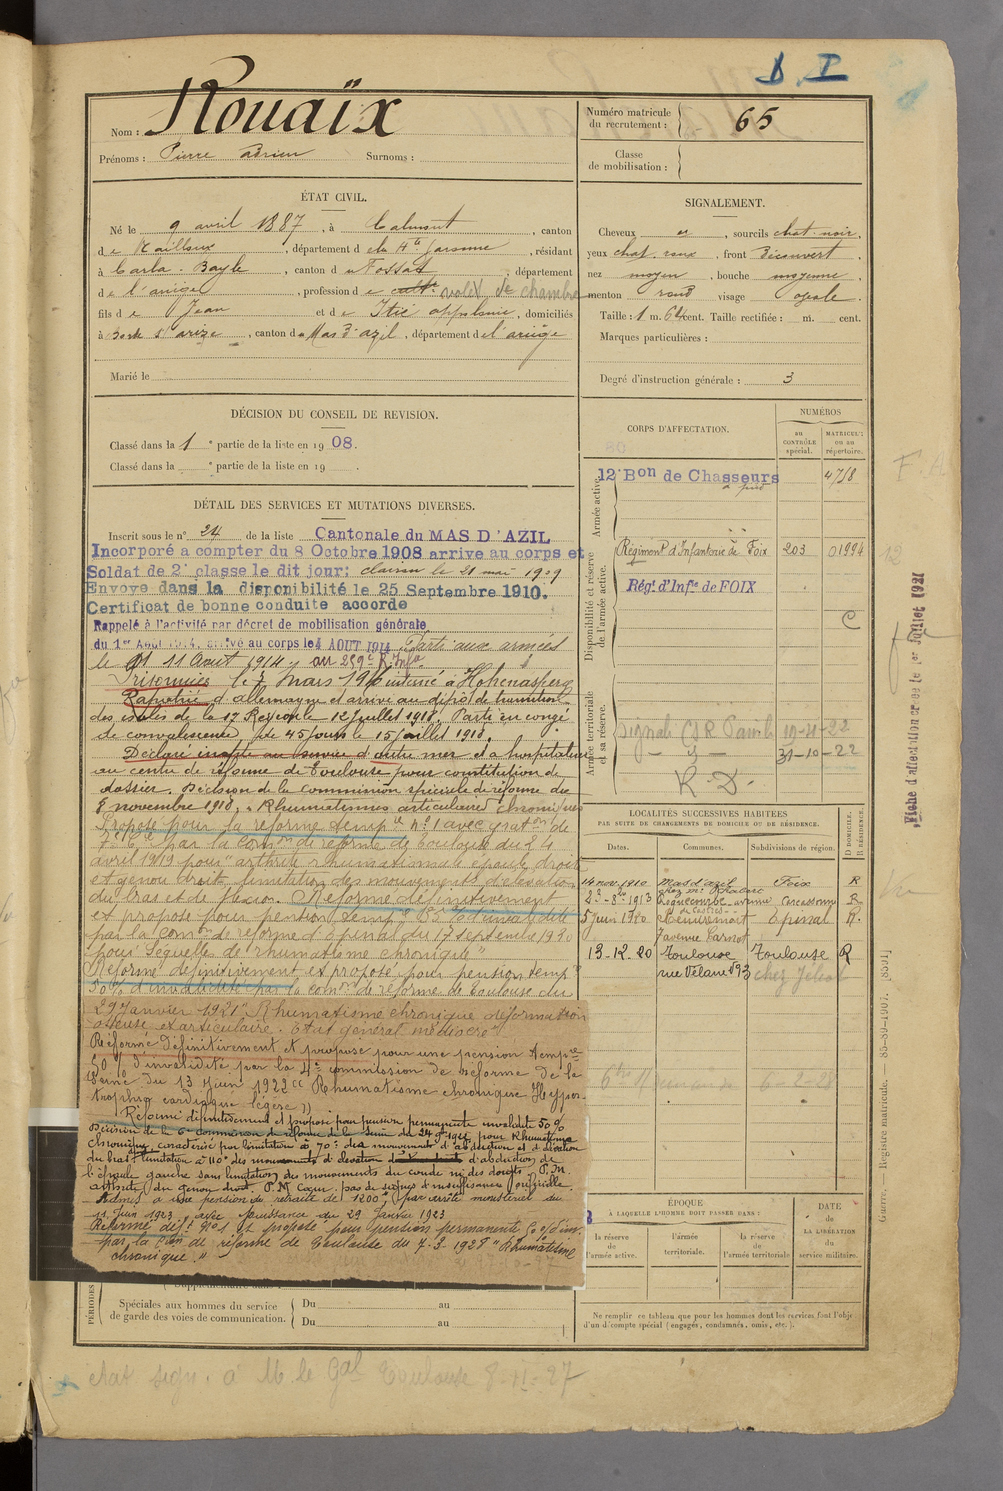 D I
Nom : Rouaïx
Prénoms : Pierre Adrien Surnoms :
Numéro matricule du recrutement : 65
Classe de mobilisation :
ÉTAT CIVIL.
Né le 9 avril 1887, à Calmont, canton
de Nailloux, département de la Hte Garonne, résidant
à Carla-Bayle, canton du Fossat, département
de l'ariège, profession de cult. valet de chambre
fils de Jean et de Itié appolonie, domiciliés
à , canton du Mas d'azil, département de l'ariège
Marié le
SIGNALEMENT.
Cheveux , sourcils chat. noir,
yeux chat. roux, front Découvert,
nez moyen, bouche moyenne,
menton rond visage ovale.
Taille : 1 m. 64 cent. Taille rectifiée : m. cent.
Marques particulières :
Degré d'instruction générale : 3
DÉCISION DU CONSEIL DE REVISION.
Classé dans la 1e partie de la liste en 1908.
Classé dans la e partie de la liste en 19 .
DÉTAIL DES SERVICES ET MUTATIONS DIVERSES.
Inscrit sous le n° 24 de la liste Cantonale du MAS D'AZIL
Incorporé a compter du 8 Octobre 1908 arrive au corps et
Soldat de 2e classe le dit jour; clairon le 21 mai 1909
Envoyé dans la disponibilité le 25 Septembre 1910.
Certificat de bonne conduite accordé
Rappelé à l'activité par décret de mobilisation générale
du 1er Août 1914. arrivé au corps le 4 AOUT 1914 Parti aux armées
le 11 Août 1914 au 259e R. Infie
Prisonnier le mars 1916 interné à Hohenasperg
Rapatrié d'allemagne et arrivé au dépôt de transition
des isolés de la 17 Region le 12 juillet 1918. Parti en congé
de convalescence de 45 jours le 15 juillet 1918.
Déclaré inapte au service d'outre mer et a hospitaliser
au centre de réforme de Toulouse pour constitution de
dossier. Décision de la Commission spéciale de réforme du
8 novembre 1918, "Rhumatismes articulaires chroniques
Proposé pour la réforme tempre n° 1 avec graton de
7e Cie par la Comon de réforme de Toulouse du 24
avril 1919 pour "arthrite rhumatismale épaule droite
et genou droit, limitation des mouvements d'élévation
du bras et de flexion. Réformé définitivement
et proposé pour pension tempre
par la comon de réforme d'Epinal du 17 septembre 1920
pour "Séquelles de rhumatisme chronique"
Réformé définitivement et proposé pour pension tempre
50% d'invalidité par la comon de réforme de Toulouse du
29 Janvier 1921 "Rhumatisme chronique déformation
osseuse et articulaire. Etat général médiocre"
Réformé définitivement et proposé pour une pension tempre
50% d'invalidité par la 4e commission de réforme de la
Seine du 13 Juin 1922 "Rhumatisme chronique Hyper
trophie cardiaque légère"
Réformé définitivement et proposé pour pension permanente invalidité 50%
Décision de la 6e commission de réforme de la Seine du pour Rhumatisme
chronique caractérisé par limitation à 70° des mouvements d'abduction et d'élévation
du bras limitation à 110° des mouvements d'élévation d'abduction de
l'épaule gauche sans limitation des mouvements du coude ni des doigts. P.M.
arthrite du genou droit. P.M. Cœur pas de signes d'insuffisance
Admis à une pension de retraite de 1200 par arrêté ministériel du
11 Juin 1923 avec jouissance du 29 Janvier 1923
Réformé déft n° 1 et proposé pour pension permanente
par la Com de réforme de Toulouse du 7-3-1928 "Rhumatisme
chronique."
PÉRIODES
Spéciales aux hommes du service de garde des voies de communication.
Du au
Du au
CORPS D'AFFECTATION.
NUMÉROS
au contrôle spécial.
matricule ou au répertoire.
Armée active.
12e Bon de Chasseurs à pied 4758
Disponibilité et réserve de l'armée active.
Régiment d'Infanterie de Foix 203 01994
Régt d'Infie de FOIX
C
Armée territoriale et sa réserve.
Signalé CSR 19-11-22
31-10-22
R.D.
LOCALITÉS SUCCESSIVES HABITÉES
PAR SUITE DE CHANGEMENTS DE DOMICILE OU DE RÉSIDENCE.
Dates. Communes. Subdivisions de région. D domicile. R résidence.
14 nov. 1910 Mas d'azil Foix R
1913 Carcassonne R
5 juin 1920 Epinal R.
7 avenue Carnot
13-12.20 Toulouse Toulouse R
rue 93 chez
ÉPOQUE
À LAQUELLE L'HOMME DOIT PASSER DANS :
la réserve de l'armée active.
l'armée territoriale.
la réserve de l'armée territoriale
DATE de la LIBÉRATION du service militaire.
Ne remplir ce tableau que pour les hommes dont les services font l'objet
d'un décompte spécial (engagés, condamnés, omis, etc.).
Fiche d'affectation créée le 1er Juillet 1921
Guerre. — Registre matricule. — 85-89-1907. [8501]
F. A
12
état sign. à M. le Gal Toulouse 8-11-27